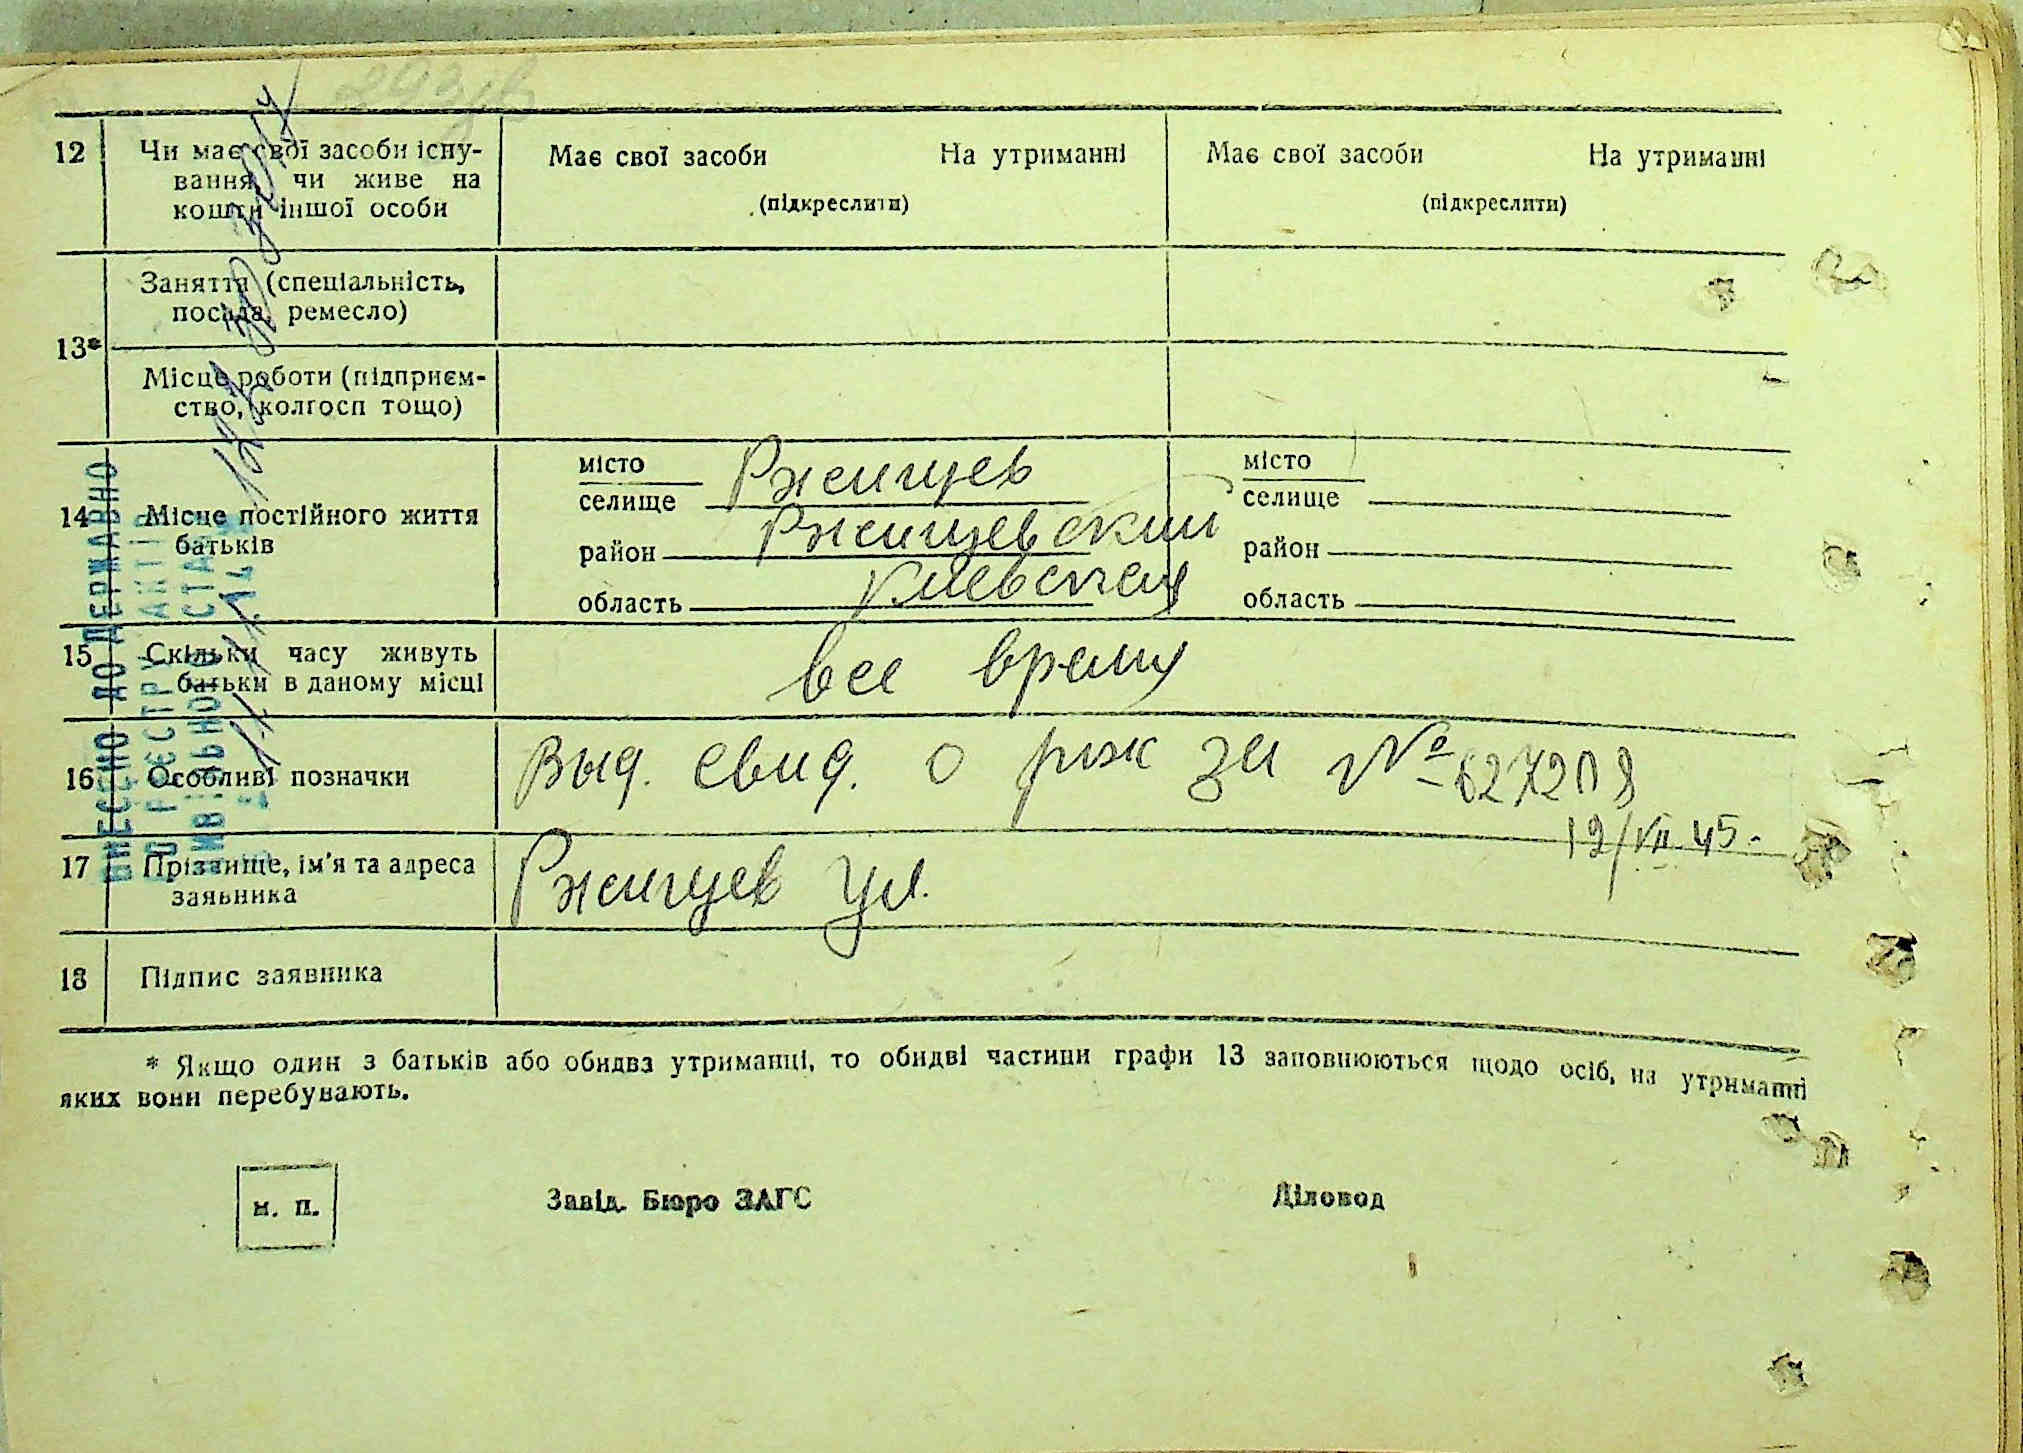 12 Чи має свої засоби існу- Має свої засоби На утриманні Має свої засоби На утриманні
вання, чи живе на
кошти іншої особи (підкреслити) (підкреслити)
Заняття (спеціальність,
посада, ремесло)
13*
Місце роботи (підприєм-
ство, колгосп тощо)
місто Ржищев місто
селище селище
14 Місце постійного життя Ржищевский
батьків район район
Киевская
область область
15 Скільки часу живуть все время
батьки в даному місці
16 Особливі позначки Выд. свид. о рож за № 627208
12/VII 45.
17 Прізвище, ім'я та адреса Ржищев ул.
заявника
18 Підпис заявника
* Якщо один з батьків або обидва утриманці, то обидві частини графи 13 заповнюються щодо осіб, на утриманні
яких вони перебувають.
м. п. Завід. Бюро ЗАГС Діловод
ВНЕСЕНО ДО ДЕРЖАВНО